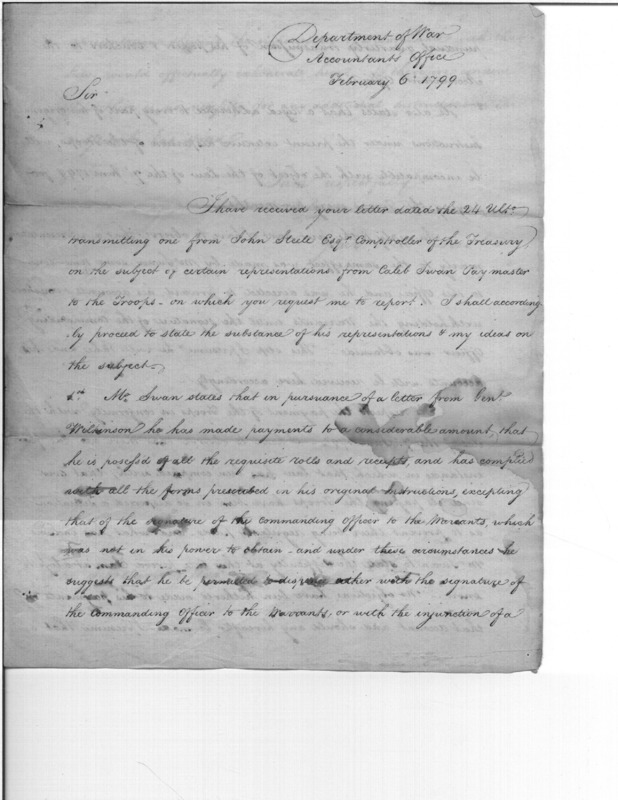 Department of War
Accountants Office
February 6th 1799
Sir
I have received your letter dated the 24 Ulto
transmitting one from John Steele Esqr Comptroller of the Treasury
on the subject of certain representations from Caleb Swan Paymaster
to the Troops - on which you request me to report. I shall according
-ly proceed to state the substance of his representations & my ideas on
the subject.
1st Mr Swan states that in pursuance of a letter from Genl
Wilkinson he has made payments to a considerable amount, that
he is possessd of all the requisite rolls and receipts, and has complied
with all the forms prescribed in his original Instructions, excepting
that of the signature of the commanding Officer to the Warrants, which
was not in his power to obtain - and under these circumstances he
suggests that he be permitted to dispence either with the signature of
the commanding Officer to the Warrants, or with the injunction of a